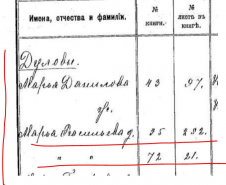 Имена, отчества и фамиліи.
№ книги.
№ листа въ книгѣ.
Дуловы.
Марья Даниловна 43 97.
Марья Васильевна д. 35 292.
" " 72 21.